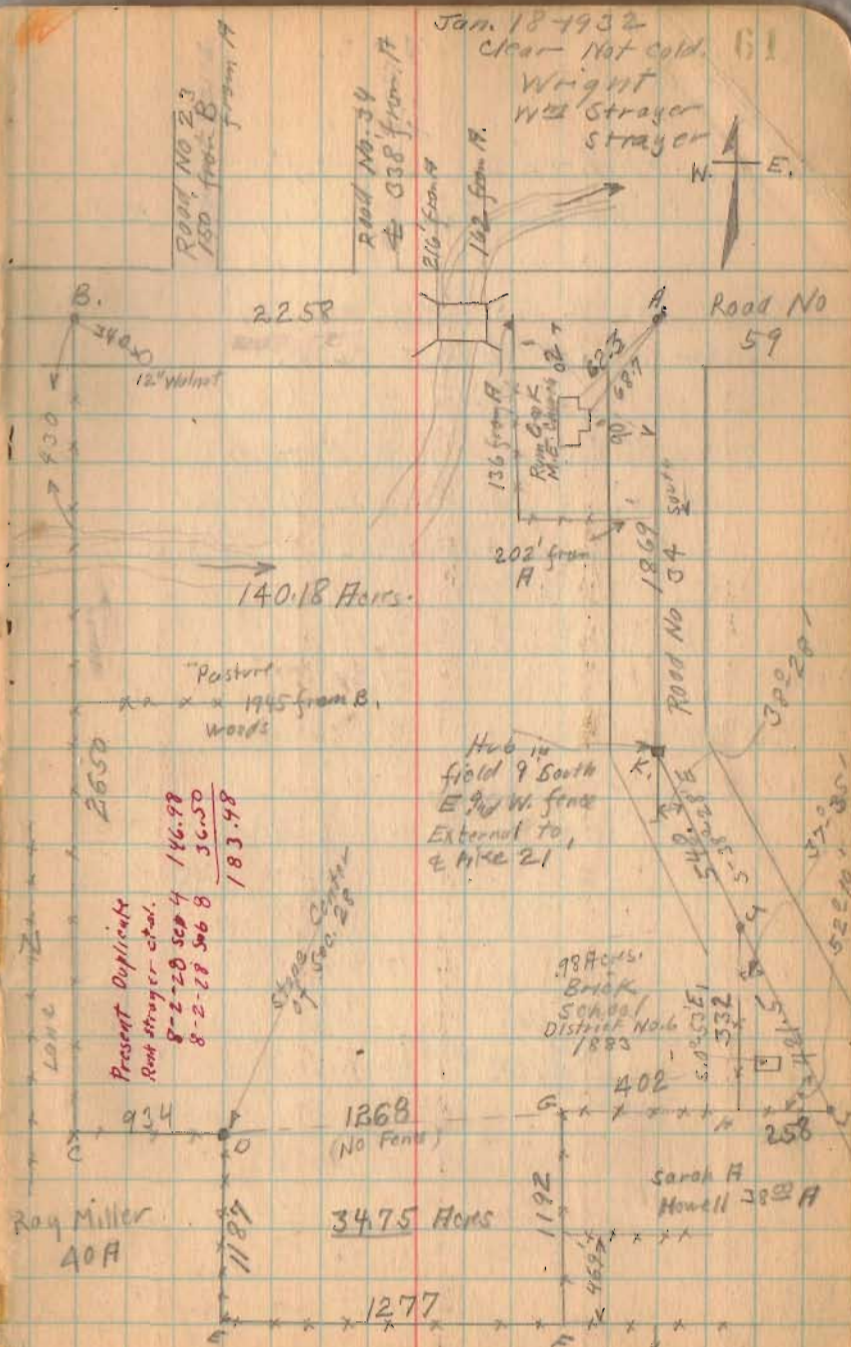 Jan. 18-1932
61
Clear Not cold.
Wright
Wm Strayer
Strayer
W. E.
Road No 23
150' from B
from A
Road No. 34
338' from A
216' from A
162 from A.
B.
2258
A.
Road No
59
340
12" Walnut
430
62.3
68.7
136 from A
Rum Creek
M.E. Church
70'
90'
202' from
A
1869
South
Road No 34
140.18 Acres.
Pasture
1945 from B.
Woods
2650
Hub in
field 9' South
E and W. fence
External to
Pike 21
K.
38°-28'
549.
S-38°-28' E
Present Duplicate
Root Strayer et al.
8-2-28 Sep 4 146.98
8-2-28 Sub 8 36.50
183.48
Stone Center
of Sec. 28
37°-35'
52°-10'
.98 Acres.
Brick
School
District No. 6
1883
S.0°-53'E
332
481.5
402
Lane
934
1268
(No Fence)
G
H
258
L
C
D
Ray Miller
40 A
1187
34.75 Acres
1192
Sarah A
Howell 38.00 A
469'
1277
E
F